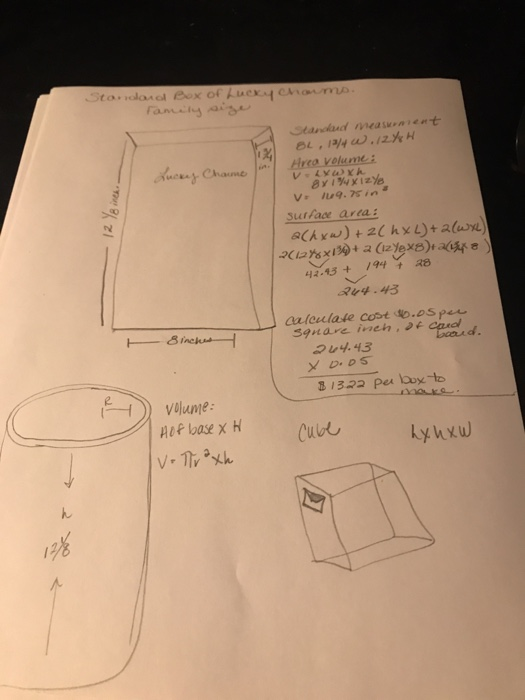 Standard Box of Lucky Charms.
Family size
Lucky Charms
1 3/4 in.
12 1/8 inch.
8 inches
Standard measurement
8L, 1 3/4 W, 12 1/8 H
Area volume:
V = L x w x h
8 x 1 3/4 x 12 1/8
V = 169.75 in³
Surface area:
2(h x w) + 2(h x L) + 2(w x L)
2(12 1/8 x 1 3/4) + 2(12 1/8 x 8) + 2(1 3/4 x 8)
42.43 + 194 + 28
264.43
Calculate cost $0.05 per
square inch, of card
board.
264.43
x 0.05
$ 13.22 per box to
make.
R
h
12 1/8
Volume:
A of base x H
V = πr² x h
Cube
L x h x W